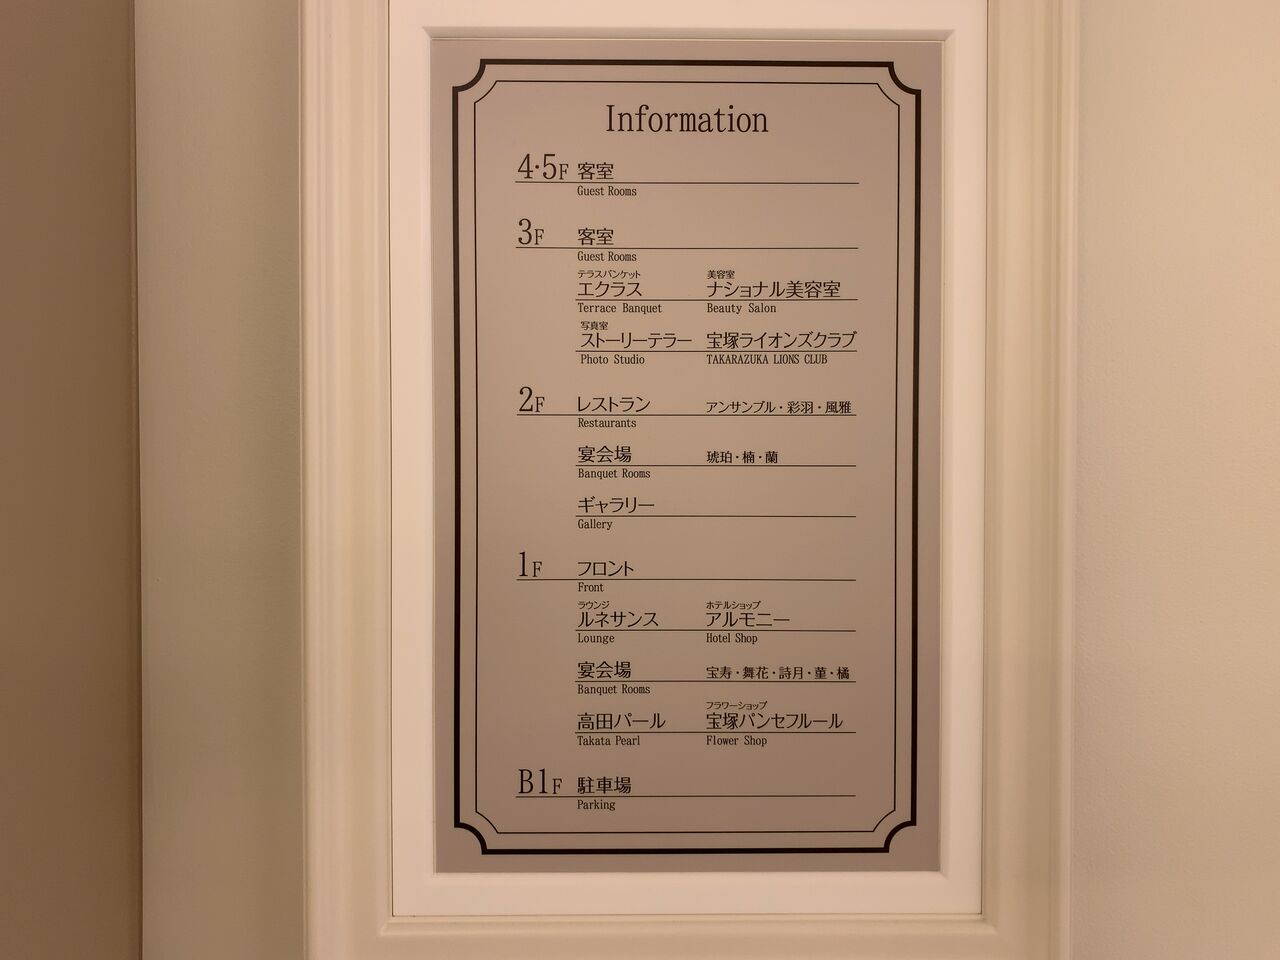 Information
4·5F 客室
Guest Rooms
3F 客室
Guest Rooms
テラスバンケット 美容室
エクラス ナショナル美容室
Terrace Banquet Beauty Salon
写真室
ストーリーテラー 宝塚ライオンズクラブ
Photo Studio TAKARAZUKA LIONS CLUB
2F レストラン アンサンブル・彩羽・風雅
Restaurants
宴会場 琥珀・楠・蘭
Banquet Rooms
ギャラリー
Gallery
1F フロント
Front
ラウンジ ホテルショップ
ルネサンス アルモニー
Lounge Hotel Shop
宴会場 宝寿・舞花・詩月・菫・橘
Banquet Rooms
フラワーショップ
高田パール 宝塚パンセフルール
Takata Pearl Flower Shop
B1F 駐車場
Parking